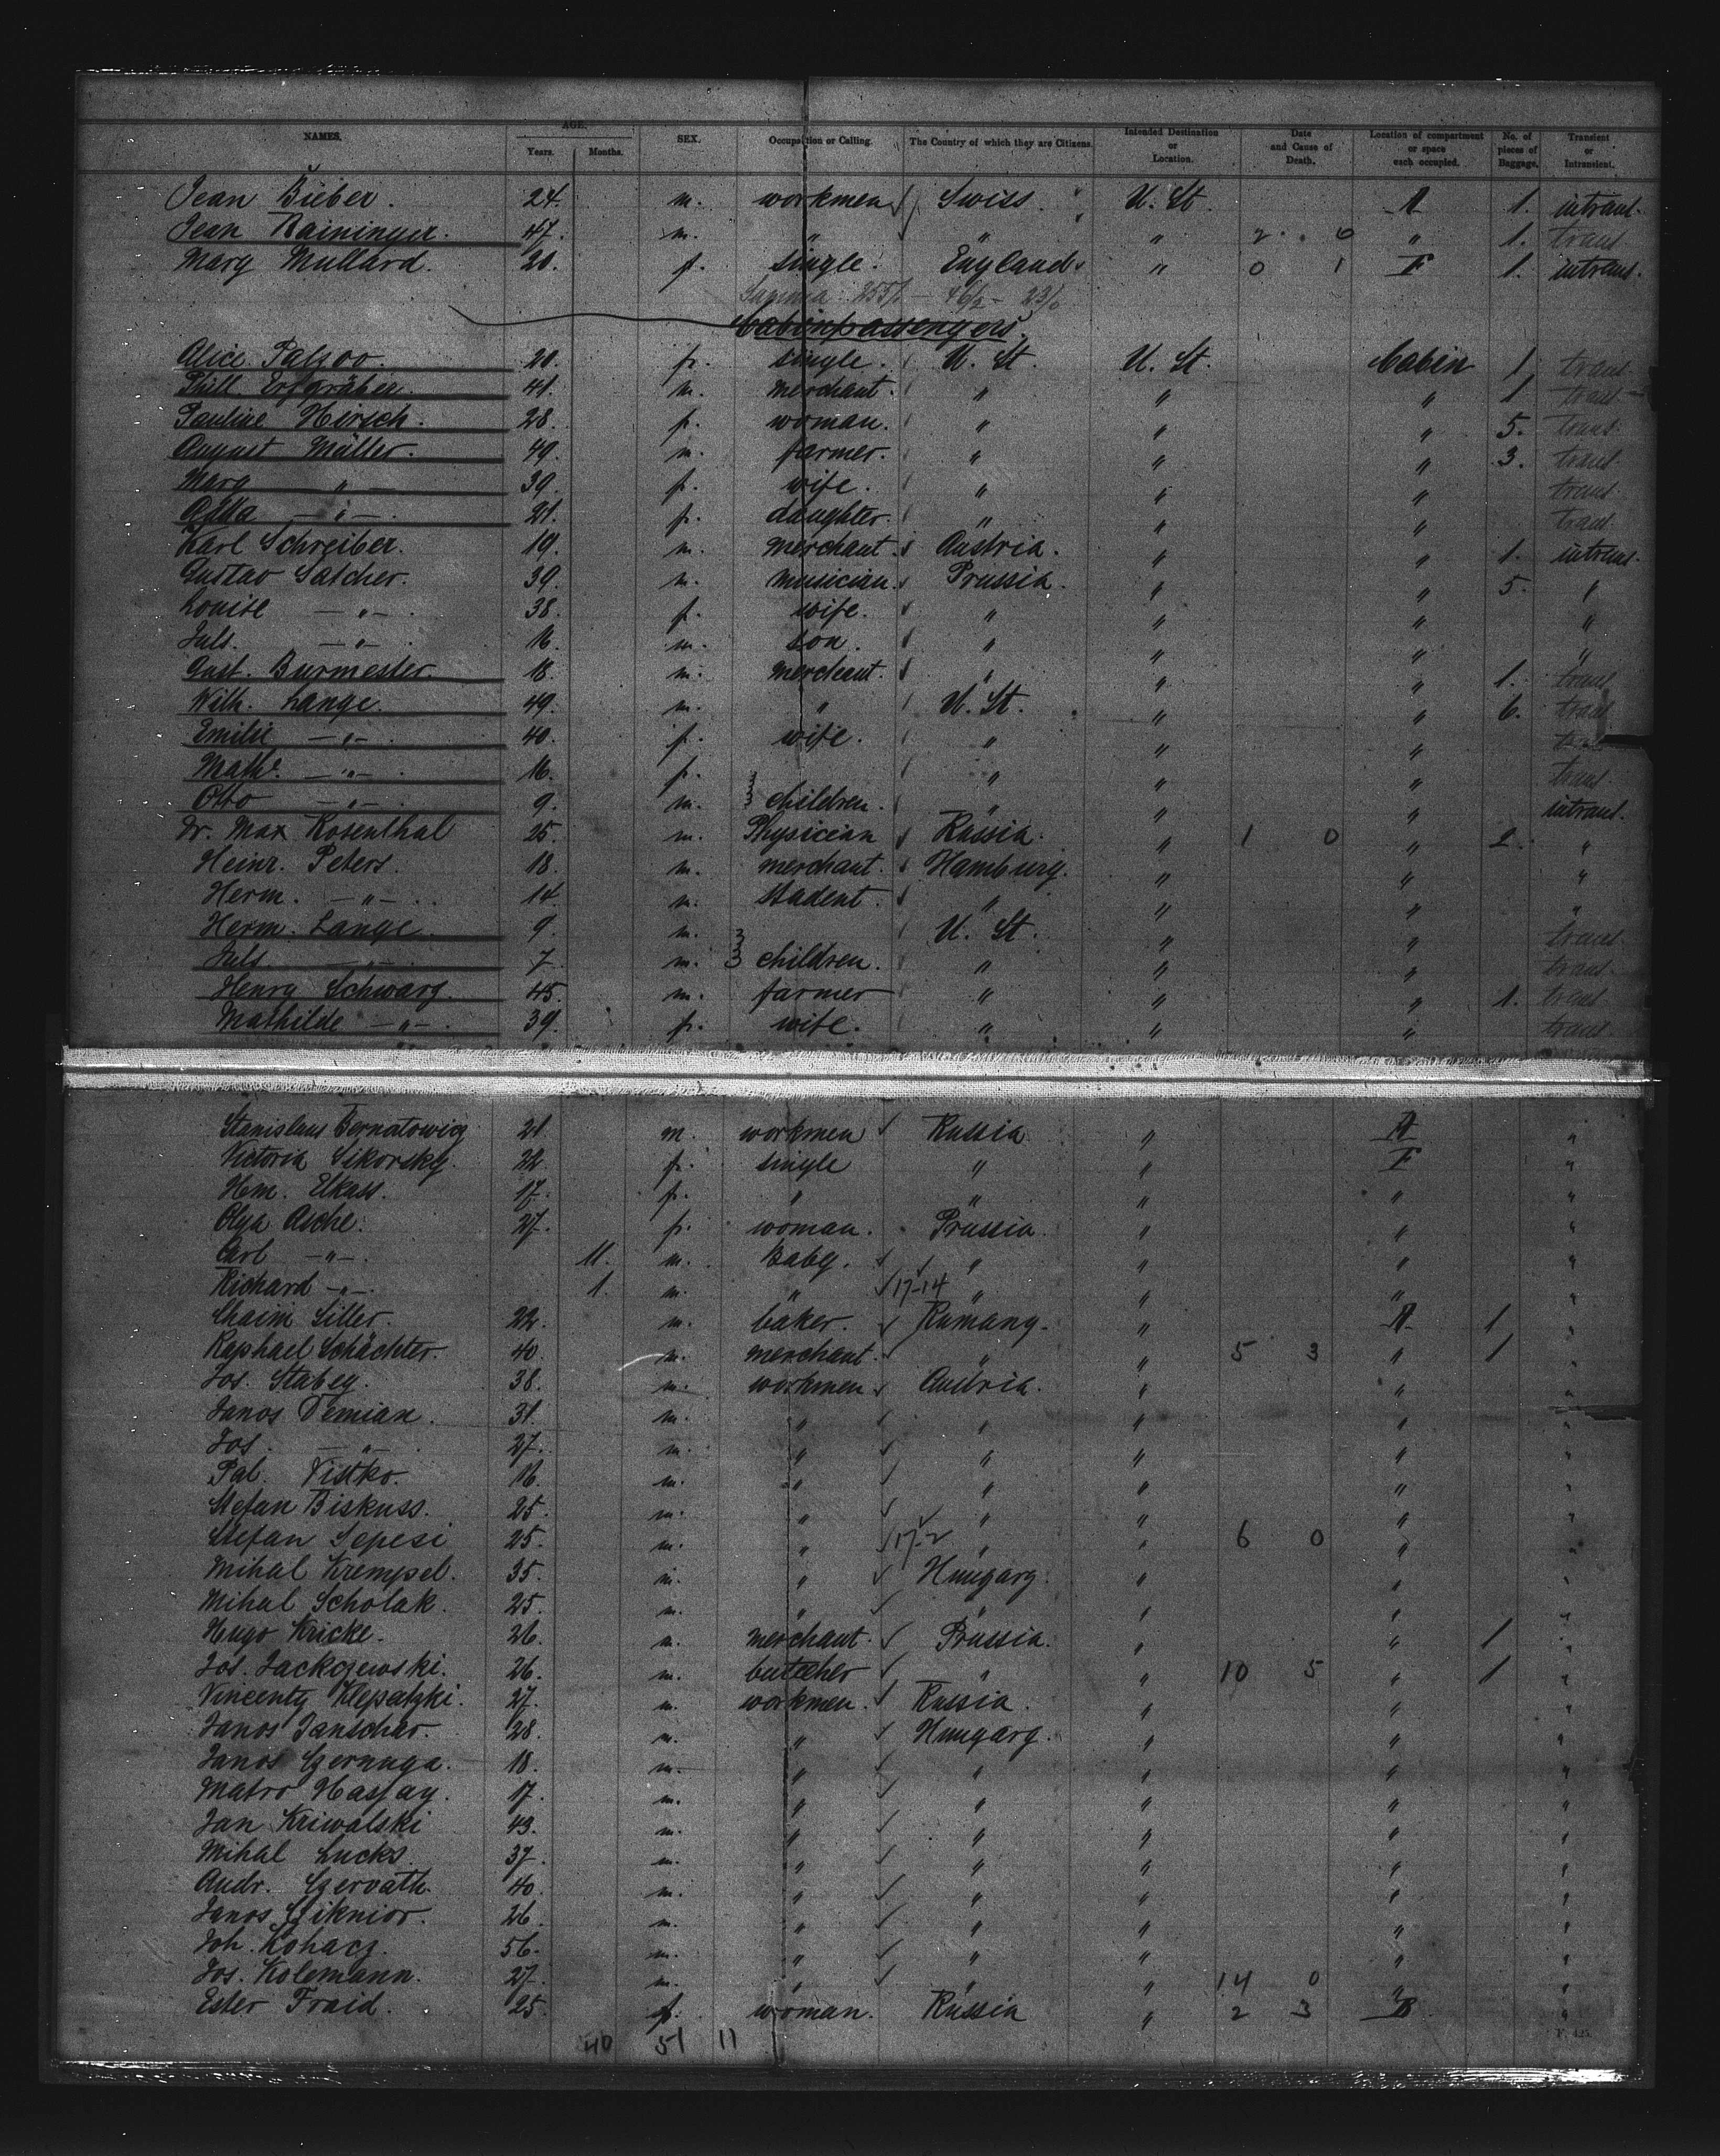 NAMES. AGE. Years. Months. SEX. Occupation or Calling. The Country of which they are Citizens. Intended Destination or Location. Date and Cause of Death. Location of compartment or space each occupied. No. of pieces of Baggage. Transient or Intransient.
Jean Bieber. 24. m. workmen Swiss. U. St. A 1. intrans.
Jean Raininger. 47. m. " " " 2 . 0 " 1. trans.
Mary Mullard. 20. f. single. England " 0 1 F 1. intrans.
Summa 255/1 - 46/2 - 23/0
Cabinpassengers.
Alice Palzoo. 20. f. single. U. St. U. St. Cabin 1. trans.
Phill. Erfgräber. 41. m. merchant. " " " 1 trans
Pauline Hirsch. 28. f. woman. " " " 5. trans.
August Müller. 49. m. farmer. " " " 3. trans.
Marg " 39. f. wife. " " " trans.
- " - 21. f. daughter. " " " trans.
Karl Schreiber. 19. m. merchant. Austria. " " 1. intrans.
Gustav Satcher. 39. m. musician. Prussia. " " 5. "
Louise - " - 38. f. wife. " " " "
Juls. - " - 16. m. son. " " " "
Gust. Burmester. 18. m. merchant. " " " 1. trans.
Wilh. Lange. 49. m. " U. St. " " 6. trans.
Emilie - " - 40. f. wife. " " " trans.
Math. - " - 16. f. " " " trans.
Otto - " - 9. m. children. " " " intrans.
Dr. Max Rosenthal 25. m. Physician Russia. " 1 0 " 2. "
Heinr. Peters. 18. m. merchant. Hamburg. " " "
Herm. - " - 14. m. student. " " " "
Herm. Lange. 9. m. U. St. " " trans.
Juls. - " - 7. m. children. " " " trans.
Henry Schwarz. 45. m. farmer " " " 1. trans.
Mathilde - " - 39. f. wife. " " " trans.
Stanislaus Bernatowicz 21. m. workmen Russia " A "
Victoria Sikorsky. 22. f. single " " F "
Hm. Elkass. 17. f. " " " " "
Olga Asche. 27. f. woman. Prussia. " " "
Carl - " - 11. m. baby. " " " "
Richard - " - 1. m. " 17-14 " " " "
Chaim Siller. 22. m. baker. Rumany. " A 1 "
Raphael Schächter. 40. m. merchant. " " 5 3 " 1 "
Jos. Stabey. 38. m. workmen Austria. " " "
Janos Demian. 31. m. " " " " "
Jos. - " - 27. m. " " " " "
Pal. Vistko. 16. m. " " " " "
Stefan Biskuss. 25. m. " " " " "
Stefan Sepesi 25. m. " 17-2 " " 6 0 " "
Mihal Krempel. 35. m. " Hungary. " " "
Mihal Scholak. 25. m. " " " " "
Hugo Kricke. 26. m. merchant. Prussia. " " 1 "
Jos. Jackczewski. 26. m. butcher " " 10 5 " 1 "
Vincenty Klepatzki. 27. m. workmen. Russia. " " "
Janos Janschar. 28. m. " Hungary. " " "
Janos Czernuga. 18. m. " " " " "
Matro Hassay. 17. m. " " " " "
Jan Kriwalski 43. m. " " " " "
Mihal Lucks 37. m. " " " " "
Andr. Czervath. 40. m. " " " " "
Janos 26. m. " " " " "
Joh. Kohacz. 56. m. " " " " "
Jos. Kolemann. 27. m. " " " 14 0 " "
Ester Fraid. 25. f. woman. Russia " 2 3 B "
40 51 11